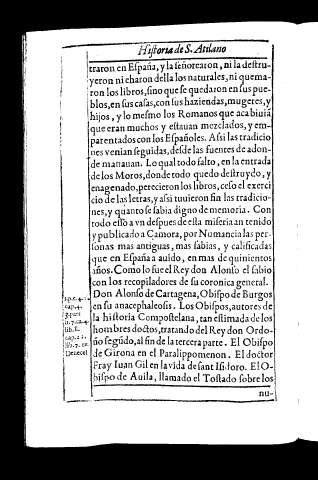 Historia de S. Atilano
traron en España, y la señorearon, ni la destru-
yeron ni echaron della los naturales, ni quema-
ron los libros, sino que se quedaron en sus pue-
blos, en sus casas, con sus haziendas, mugeres, y
hijos, y lo mesmo los Romanos que aca biuiã,
que eran muchos y estauan mezclados, y em-
parentados con los Españoles. Assi las tradicio
nes venian seguidas, desde las fuentes de adon-
de manauan. Lo qual todo falto, en la entrada
de los Moros, donde todo quedo destruydo, y
enagenado, perecieron los libros, ceso el exerci
cio de las letras, y assi tuuieron fin las tradicio-
nes, y quanto se sabia digno de memoria. Con
todo esso a vn despues de esta miseria an tenido
y publicado a Çamora, por Numancia las per-
sonas mas antiguas, mas sabias, y calificadas
que en España a auido, en mas de quinientos
años. Como lo fue el Rey don Alonso el sabio
con los recopiladores de su coronica general.
Don Alonso de Cartagena, Obispo de Burgos
en su anacephaleosis. Los Obispos, autores de
la historia Compostelana, tan estimada de los
hombres doctos, tratando del Rey don Ordo-
ño segũdo, al fin de la tercera parte. El Obispo
de Girona en el Paralippomenon. El doctor
Fray Iuan Gil en la vida de sant Isidoro. El O-
bispo de Auila, llamado el Tostado sobre los
nu-
cap. 4.
3. part
lib. 1.
cap. 21.
lib. 7. in